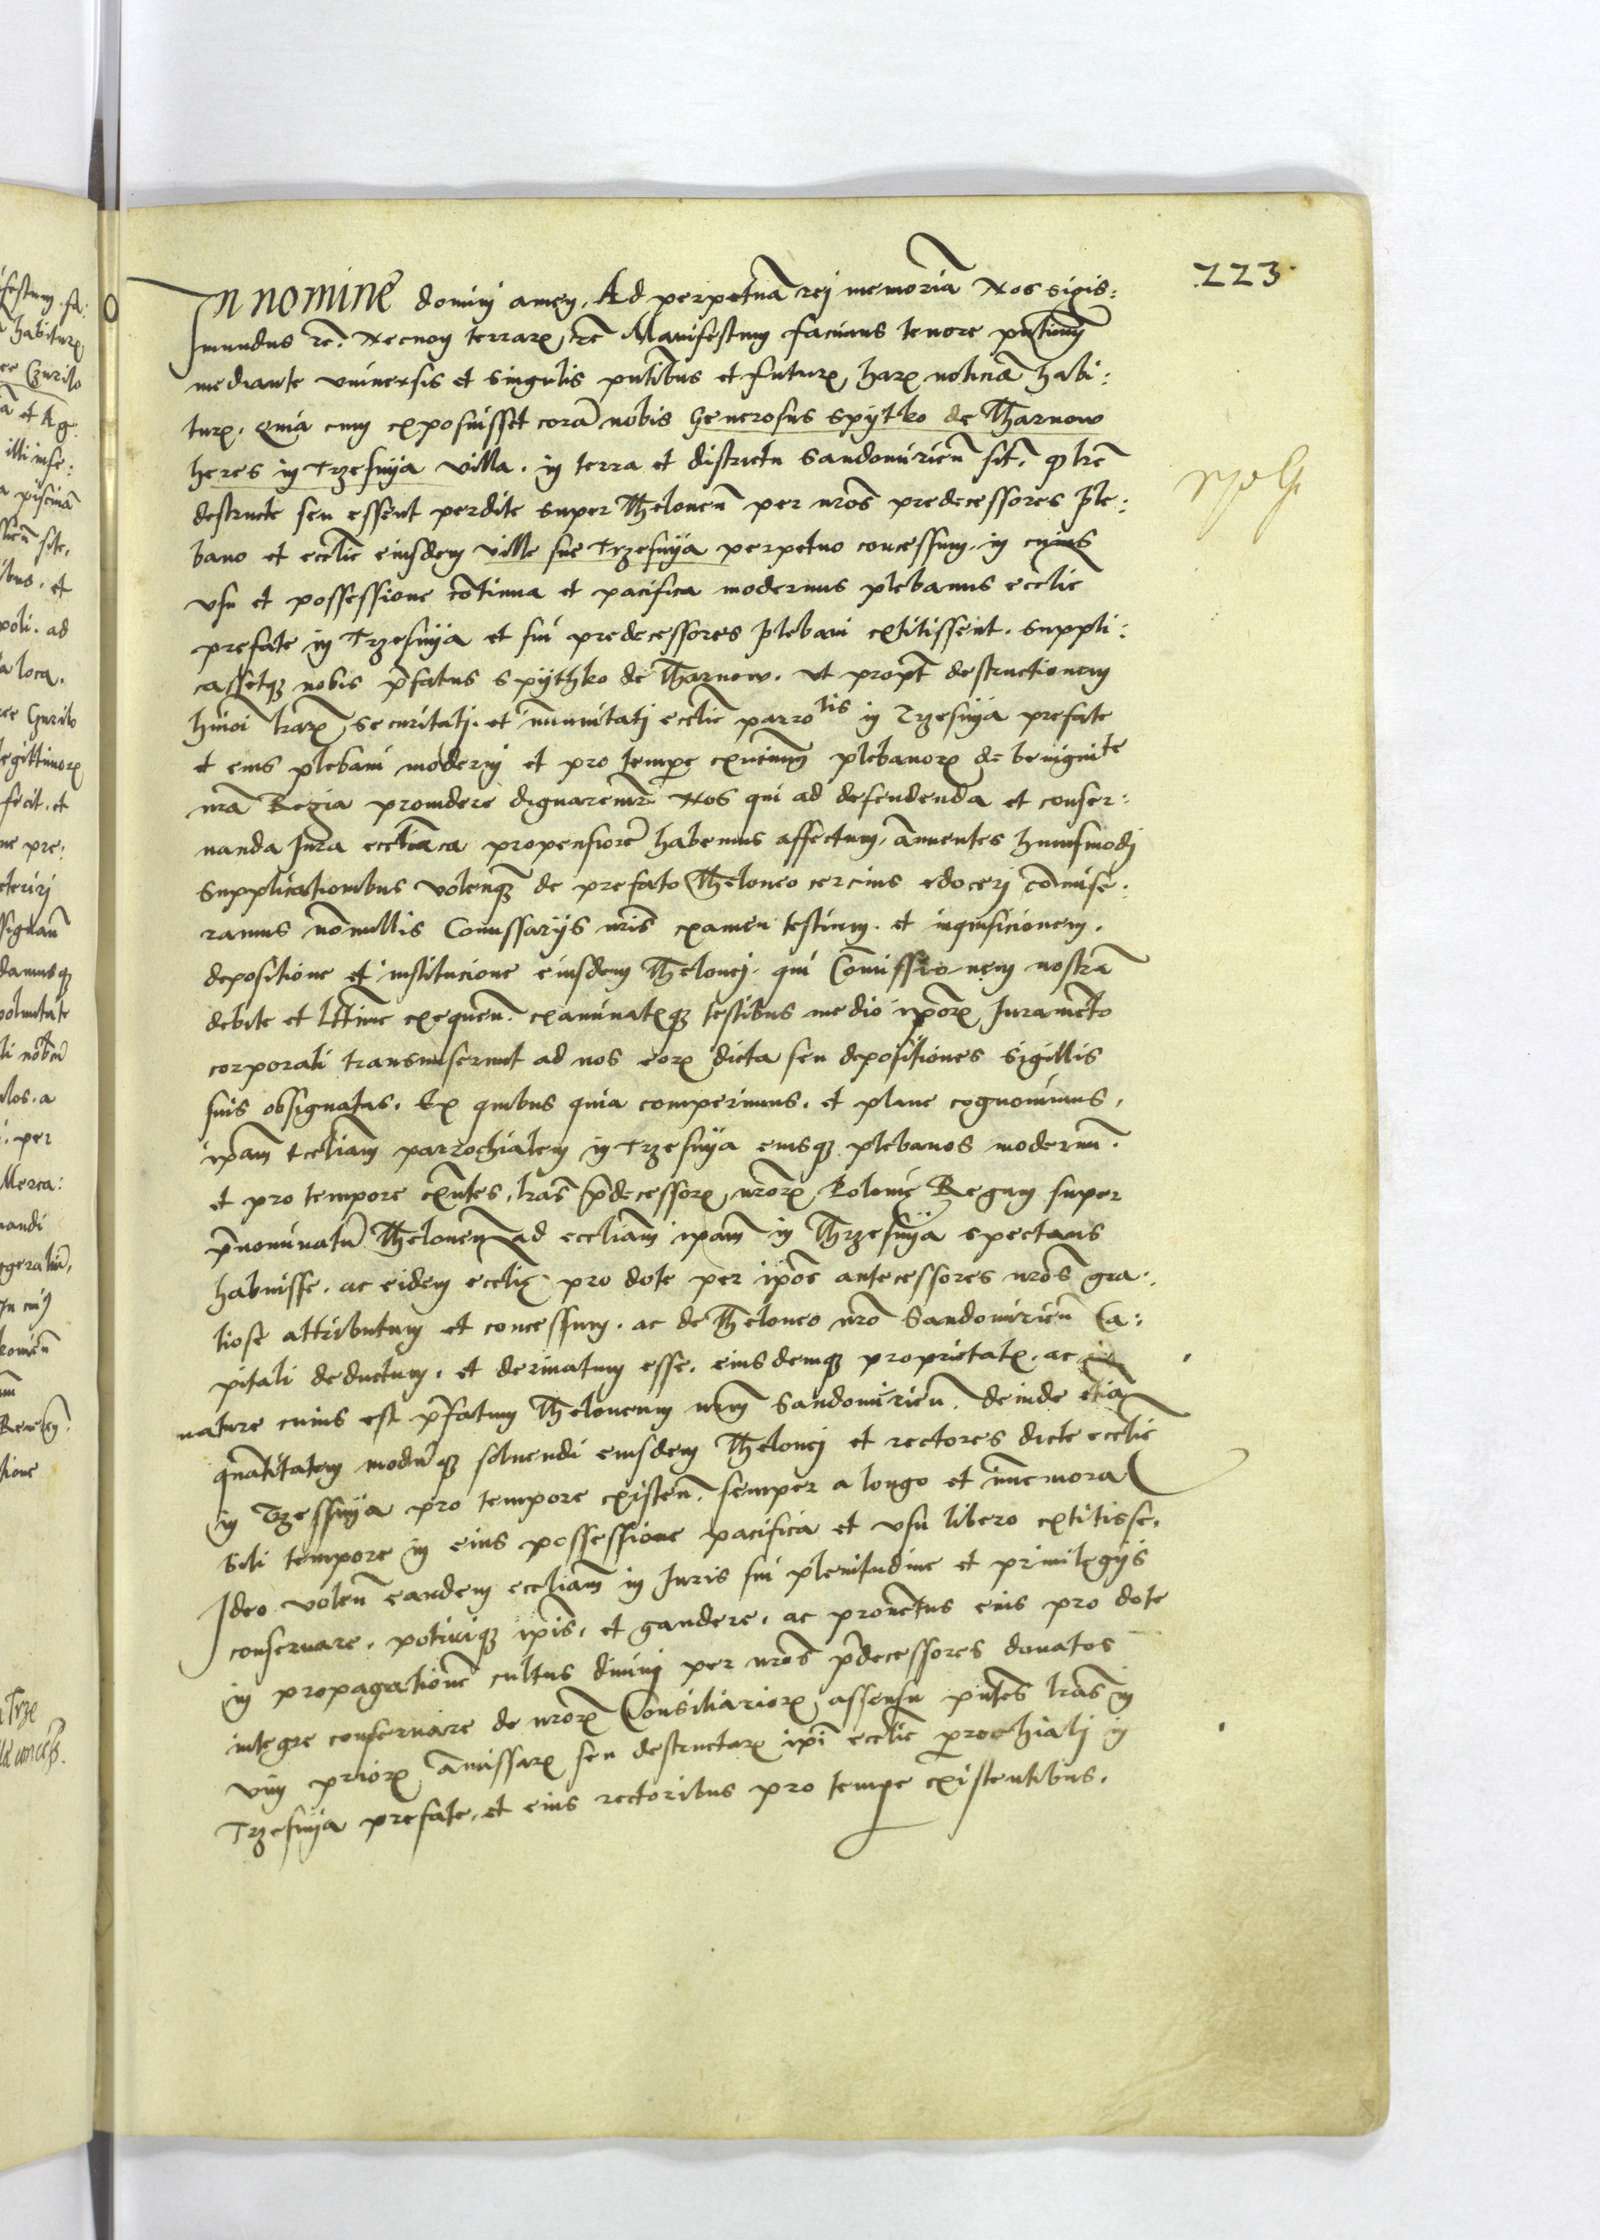 223
In nomine domini amen. Ad perpetuã rej memoriã Nos Sigis:
mundus rc̃. Necnoŋ terrarꝝ, etc̃ Manifestum facimus tenore pñtium
mediante vniuersis et singulis pñtibus et futurꝝ, harꝝ noticiã habi:
turꝝ. Quia cum exposuisset corã nobis Generosus Spytko de Tharnow
heres in Trzesnya villa. in terra et districtu Sandomirieñ sit̃. ꝙ lrẽ
destructe seu essent perdite super Theloneũ per nros̃ predecessores Ple:
bano et ecclie eiusdem ville sue Trzesnya perpetuo concessum. in cuius
vsu et possessione cõtinua et pacifica modernus plebanus ecclie
prefate in Trzesnya et sui predecessores Plebani extitissent. suppli:
cassetqꝫ nobis p̃fatus Spythko de Tharnow. vt propt̃ destructionem
hmõi lrarꝝ, securitatj. et ĩmunitatj ecclie parrotis in Trzesnya prefate
et eius plebani modernj et pro tempe exñtium plebanorꝝ de benignite
nrã Regia prouidere dignaremr̃ Nos qui ad defendenda et conser:
uanda Iura eccl̃iaca propensiorẽ habemus affectum, ãnuentes huiusmodj
supplicationibus volenqꝫ de prefato Theloneo cercius edocerj cõmise:
ramus nõnullis Comissarijs nris̃ examen testium. et inquisicionem.
depositione et institucione eiusdem Thelonej. qui Comissionem nostrã
debite et lttime exequen̄. examinatꝫqꝫ testibus medio ipõrꝝ Iuramẽto
corporali transmiserunt ad nos eorꝝ dicta seu depositiones sigillis
suis obsignatas. Ex quibus quia comperimus. et plane cognouimus,
ipãm eccliam̃ parrochialem in Trzesnya eiusqꝫ plebanos modernũ.
et pro tempore exñtes, lras̃ p̃decessorꝝ, nrorꝝ Polonię Regum super
p̃nominatũ Theloneum ad eccliam̃ ipãm in Thrzesnya spectans
habuisse. ac eidem ecclię pro dote per ipõs antecessores nros̃ gra:
tiose attributum et concessum. ac de Theloneo nrõ Sandomirieñ Ca:
pitali deductum. et deriuatum esse. eiusdemqꝫ proprietatꝫ. ac
nature cuius est p̃fatum Theloneum nrm̃ Sandomirieñ. deinde etiã
quãtitatem modũqꝫ soluendi eiusdem Thelonej et rectores dicte ecclie
in Trzessnya pro tempore existen̄. semper a longo et ĩmemora
bili tempore in eius possessione pacifica et vsu libero extitisse.
Ideo volen̄ eandem eccliam̃ in Iuris sui plenitudine et priuilegijs
conseruare, potiriqꝫ ipĩs, et gaudere. ac prouentus eius pro dote
in propagationẽ cultus diuinj per nros̃ p̃decessores donatos
integre conseruare de nrorꝝ Consiliariorꝝ, assensu pñtes lras̃ in
vim priorꝝ ãmissarꝝ seu destructarꝝ ipĩ ecclie parochialj in
Trzesnya prefate, et eius rectoribus pro tempe existentibus.